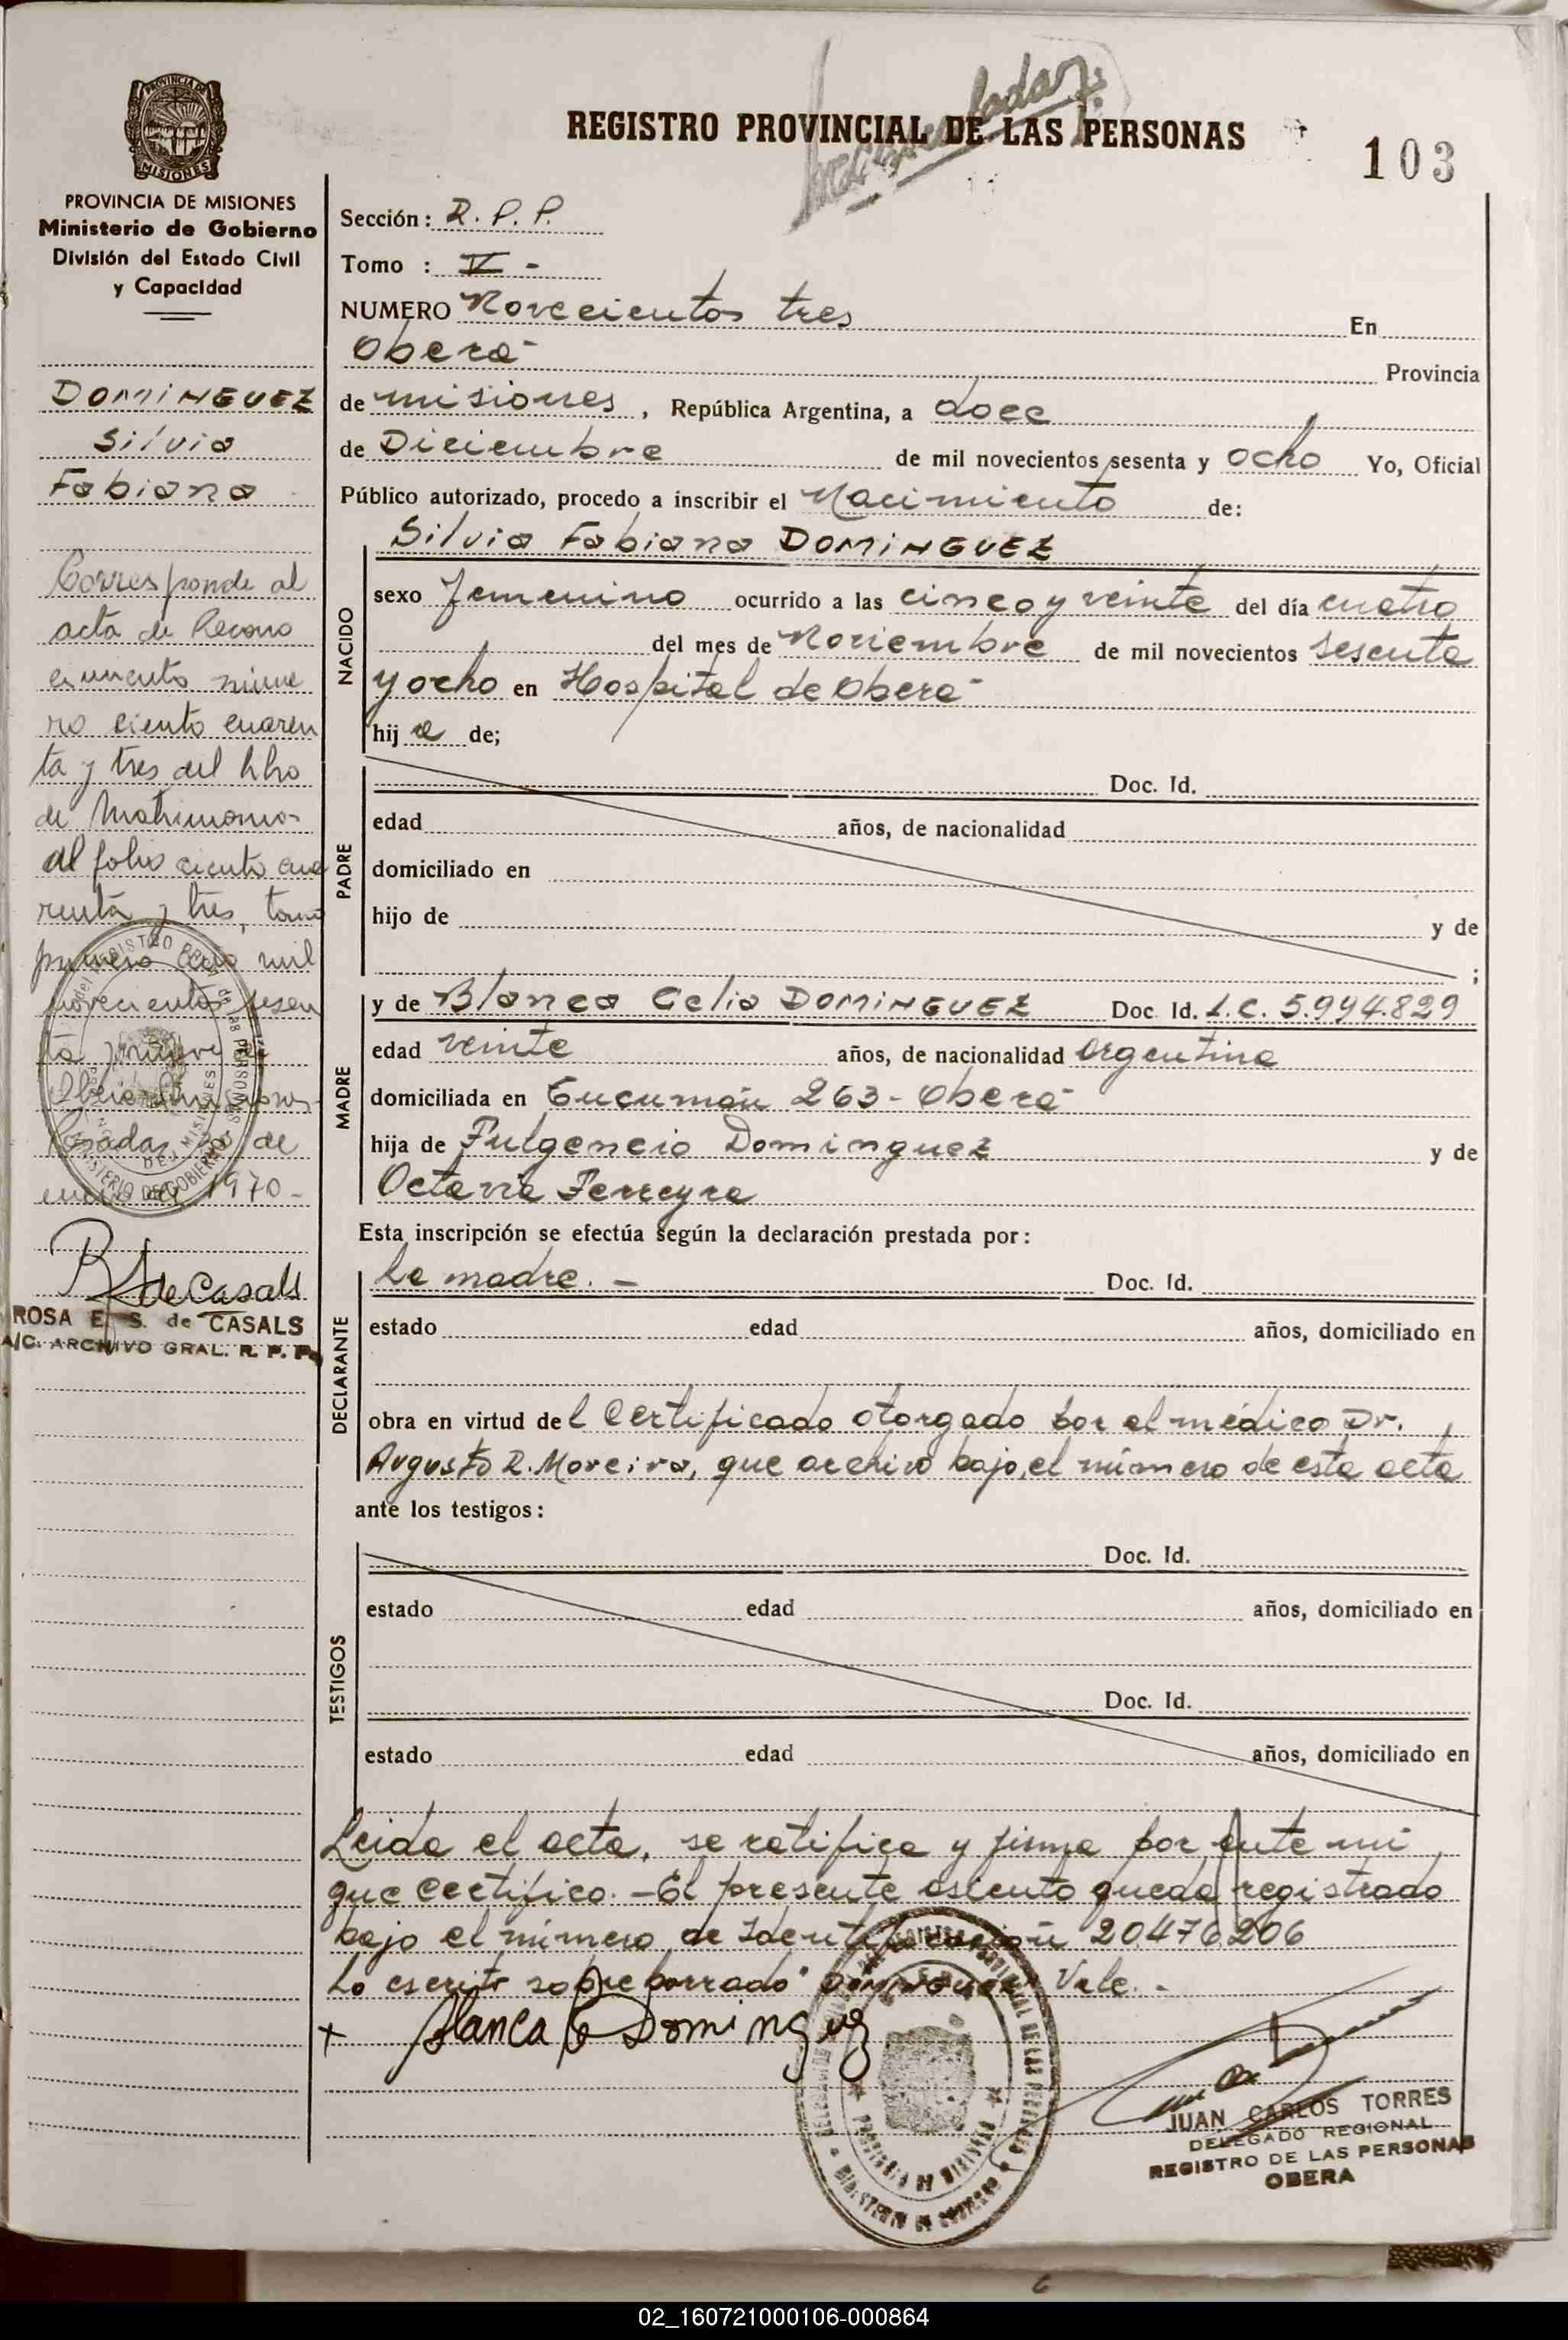 REGISTRO PROVINCIAL DE LAS PERSONAS
103
PROVINCIA DE MISIONES
Ministerio de Gobierno
División del Estado Civil
y Capacidad
DOMINGUEZ
Silvia
Fabiana
Corresponde al
acta de Recono
cimiento núme
ro ciento cuaren
ta y tres del libro
de Matrimonio
al folio ciento cua
renta y tres, tomo
primero año mil
novecientos sesen
ta y nueve de
Oberá Misiones
Posadas, de
enero de 1970-
ROSA E. S. de CASALS
A/C. ARCHIVO GRAL. R. P. P.
Sección: R. P. P.
Tomo : V -
NUMERO Novecientos tres En
Oberá Provincia
de misiones, República Argentina, a doce
de Diciembre de mil novecientos sesenta y ocho Yo, Oficial
Público autorizado, procedo a inscribir el Nacimiento de:
Silvia Fabiana DOMINGUEZ
NACIDO
sexo Femenino ocurrido a las cinco y veinte del día cuatro
del mes de Noviembre de mil novecientos sesenta
y ocho en Hospital de Oberá
hij a de;
PADRE
Doc. Id.
edad años, de nacionalidad
domiciliado en
hijo de y de
;
MADRE
y de Blanca Celia DOMINGUEZ Doc. Id. L.C. 5.994.829
edad veinte años, de nacionalidad argentina
domiciliada en Tucumán 263 - Oberá
hija de Fulgencio Dominguez y de
Octavia Ferreyra
Esta inscripción se efectúa según la declaración prestada por:
DECLARANTE
La madre. - Doc. Id.
estado edad años, domiciliado en
obra en virtud del Certificado otorgado por el médico Dr.
Augusto R. Moreira, que archivo bajo el número de esta acta
ante los testigos:
TESTIGOS
Doc. Id.
estado edad años, domiciliado en
Doc. Id.
estado edad años, domiciliado en
Leida el acta, se ratifica y firma por ante mí
que certifico. - El presente asiento queda registrado
bajo el número de Identificación 20.476.206
Lo escrito sobre borrado "Dominguez" Vale. -
x Blanca C Dominguez
JUAN CARLOS TORRES
DELEGADO REGIONAL
REGISTRO DE LAS PERSONAS
OBERA
02_160721000106-000864